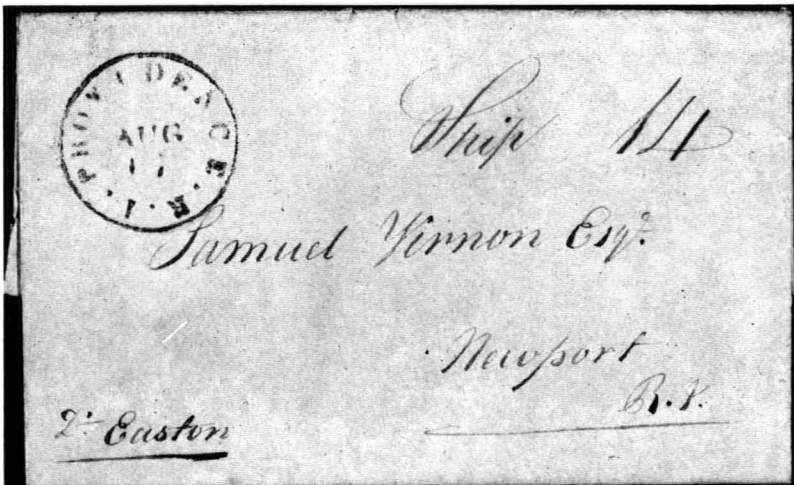 PROVIDENCE . R . I .
AUG
17
Ship 14
Samuel Vernon Esqr.
Newport
R.I.
Easton